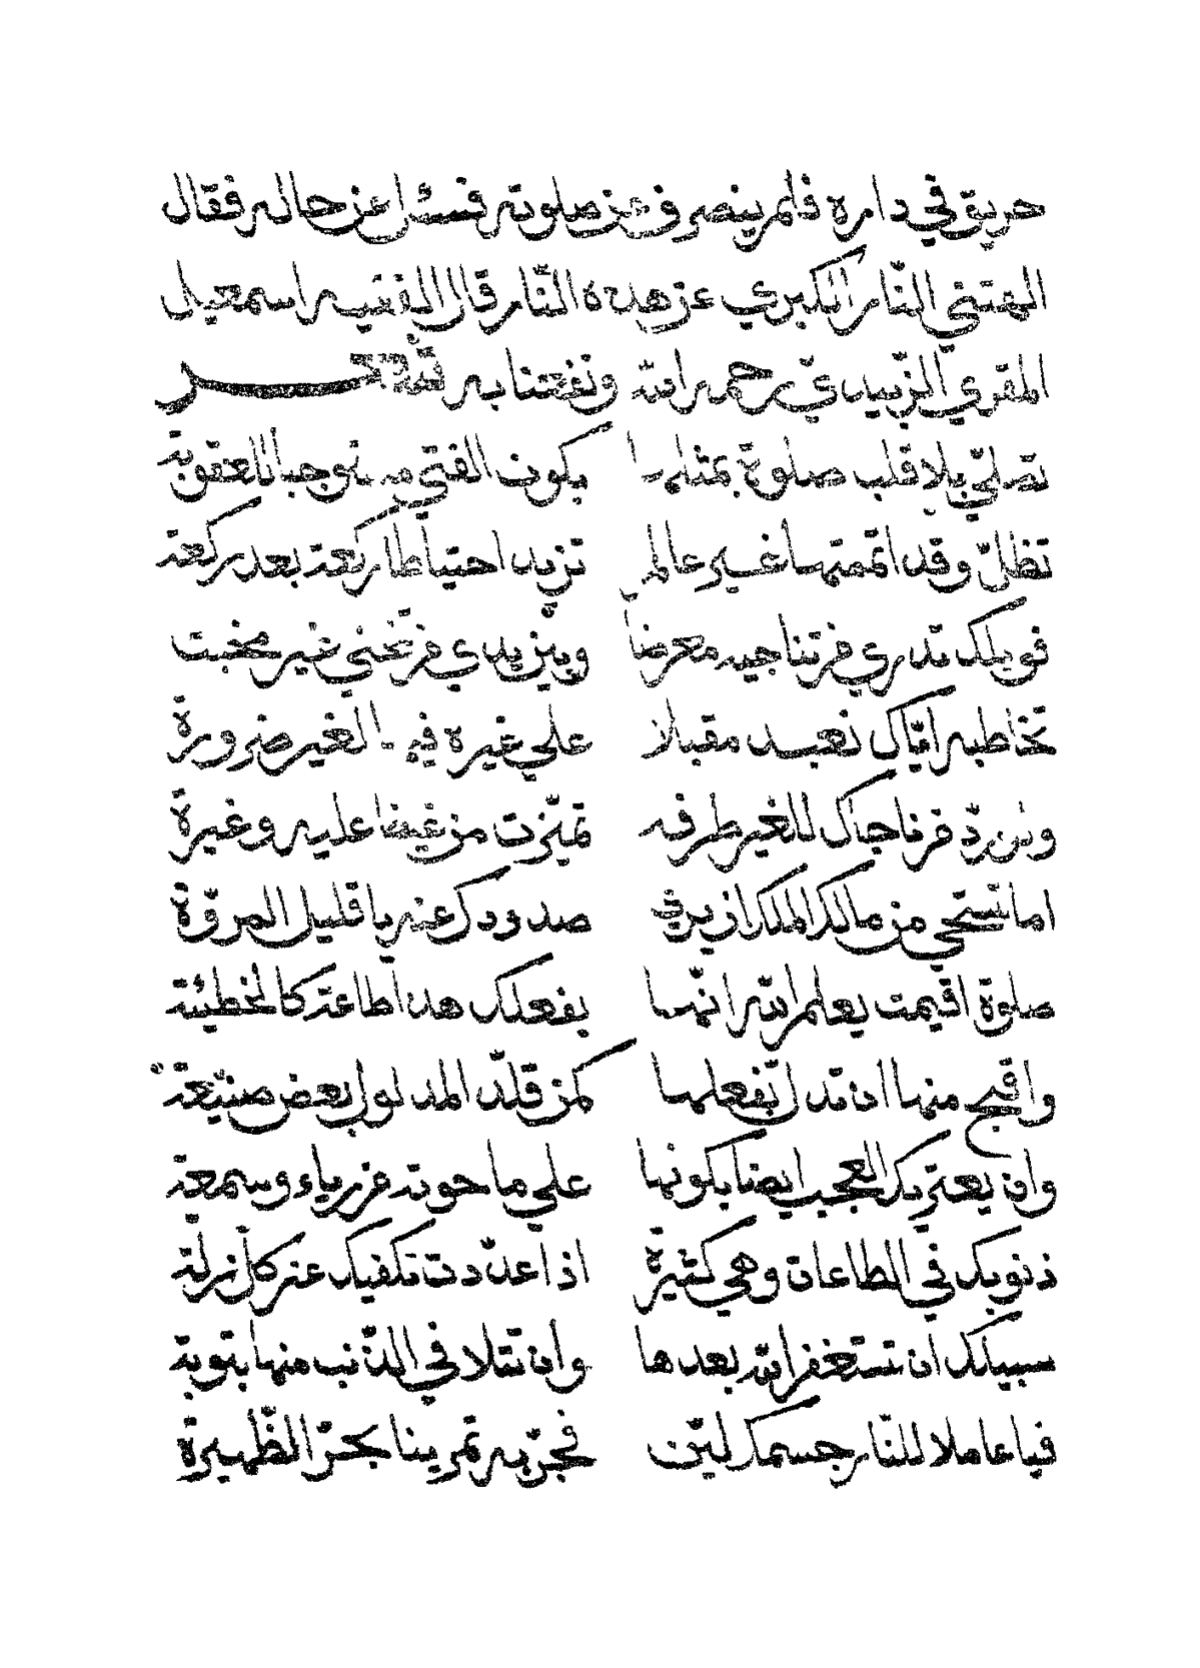 حريق في داره فلم ينصرف عن صلوته فسئل عن حاله فقال
الهتني النار الكبري عن هذه النار قال الفقيه اسمعيل
المقري الزبيدي رحمه الله ونفعنا به
تصلي بلا قلب صلوة بمثلها يكون الفتي مستوجبا للعقوبة
تظل وقد اتممتها غير عالم تزيد احتياطا ركعة بعد ركعة
فويلك تدري من تناجيه معرضا وبين يدي من تنحني غير مخبت
تخاطبه اياك نعبد مقبلا علي غيره فيها لغير ضرورة
ولو رد من ناجاك للغير طرفه تميزت من غيظ عليه وغيرة
اما تستحي من مالك الملك ان يري صدودك عنه يا قليل المروة
صلوة اقيمت يعلم الله انها بفعلك هذا طاعة كالخطيئة
واقبح منها ان تدل بفعلها كمن قلد المدلول بعض صنيعة
وان يعتريك العجب ايضا بكونها علي ما حوته من رياء وسمعة
ذنوبك في الطاعات وهي كثيرة اذا عددت تكفيك عن كل زلة
سبيلك ان تستغفر الله بعدها وان تتلافي الذنب منها بتوبة
فيا عاملا للنار جسمك لين فجربه تمرينا بحر الظهيرة